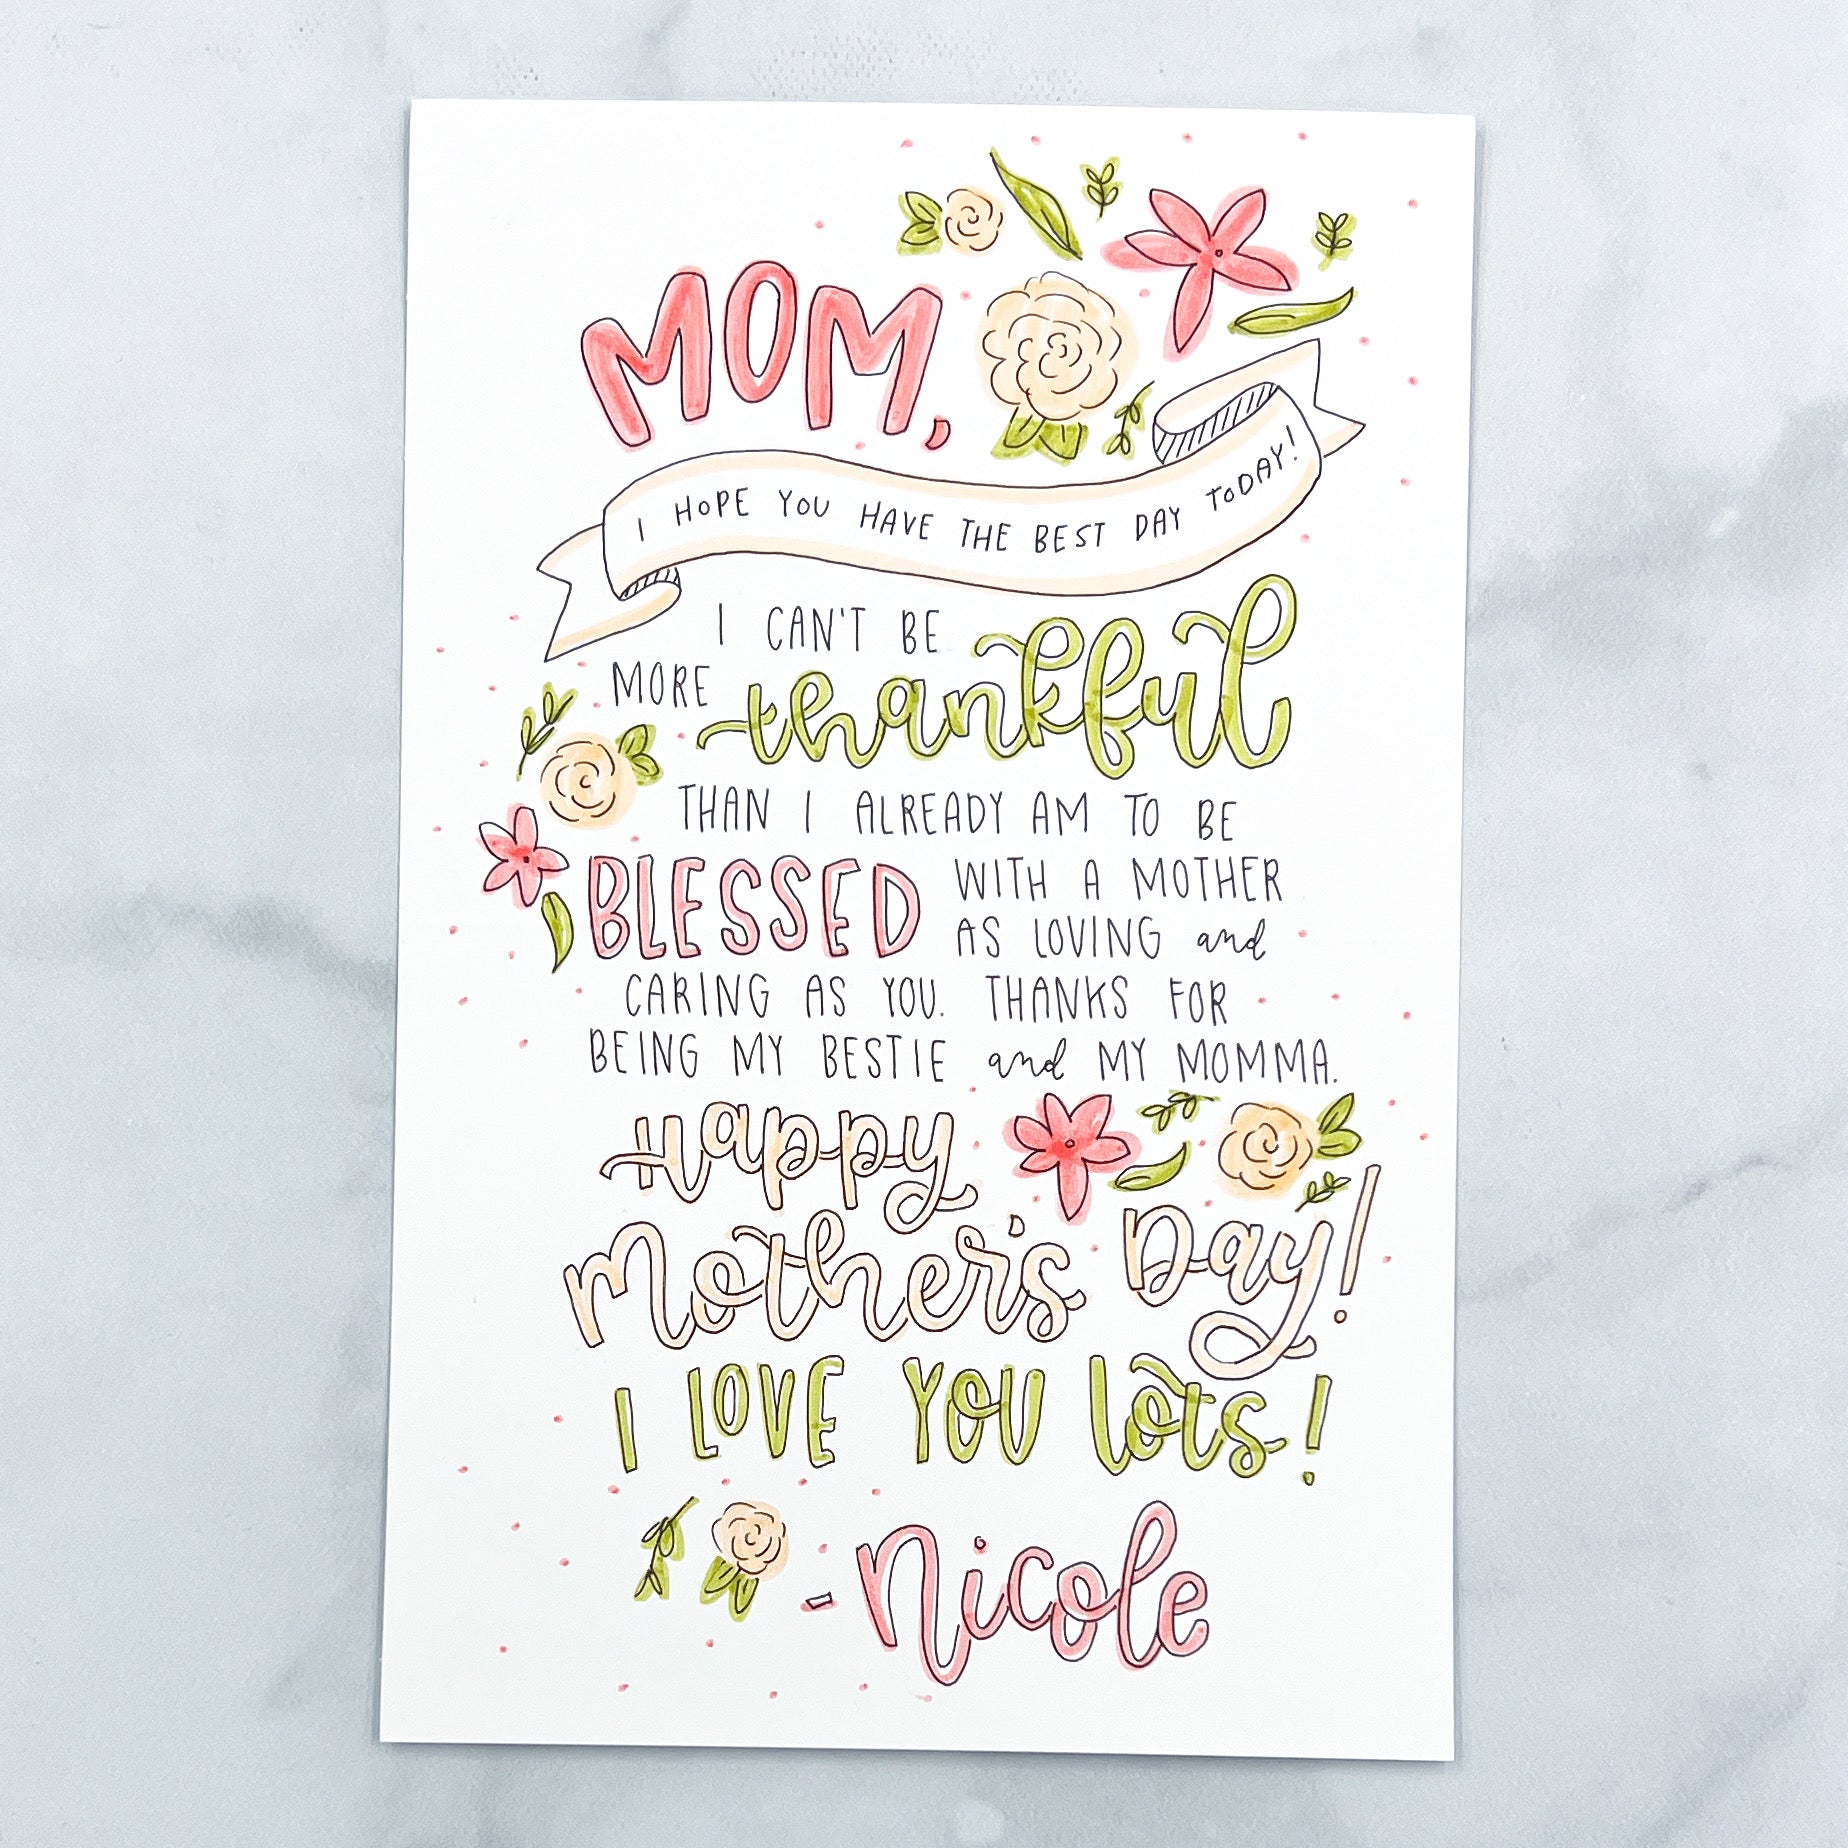 MOM,
I HOPE YOU HAVE THE BEST DAY TODAY!
I CAN'T BE
MORE thankful
THAN I ALREADY AM TO BE
BLESSED WITH A MOTHER
AS LOVING and
CARING AS YOU. THANKS FOR
BEING MY BESTIE and MY MOMMA.
Happy
Mother's Day!
I LOVE YOU lots!
-Nicole